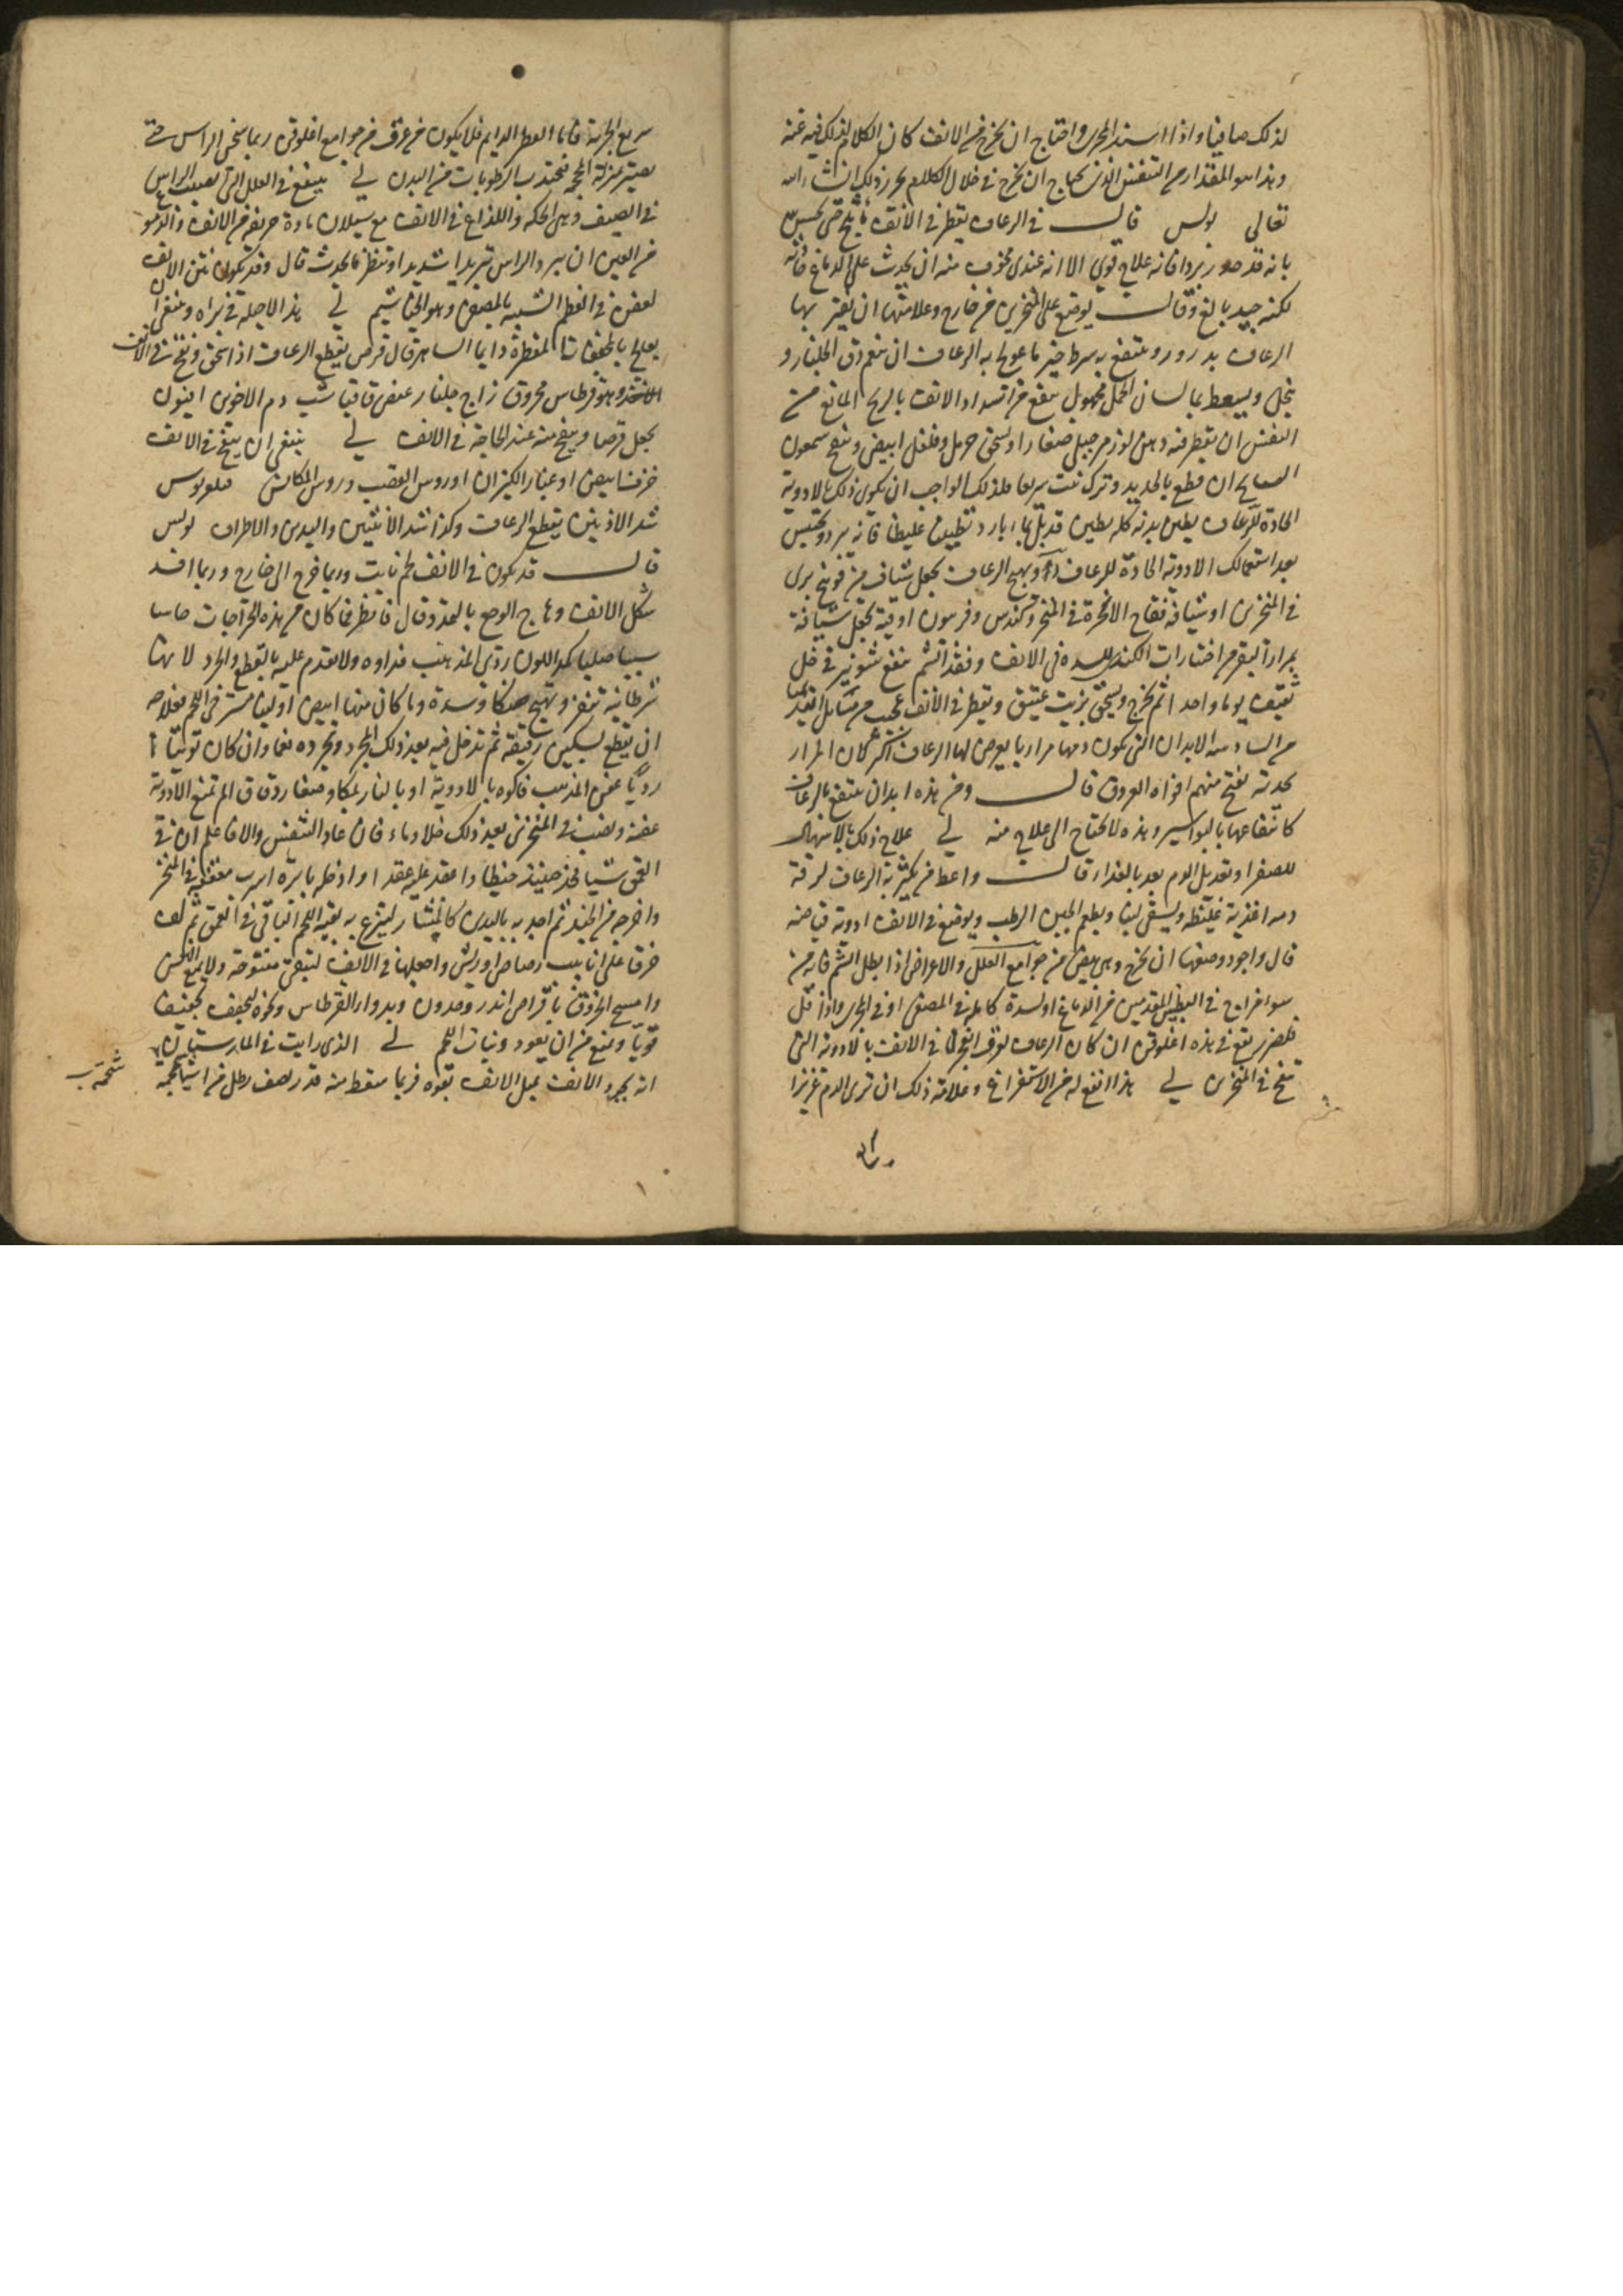 لذلك صافيا واذا انسد المجرى واحتاج ان يخرج من الانف كان الكلام لذلك فيه غنه
وهذا هو المقدار من التنفس الذى يحتاج ان يخرج فى خلال الكلام يحرر ذلك ان شاء الله
تعالى بولس قال فى الرعاف يقطر فى الانف ماء ثلج حتى يحس
بانه قد برد فانه علاج قوى الا انه عندى مخوف منه ان يحدث على الدماغ فانه
لكنه جيد بالغ وقال يوضع على المنخرين من خارج وعلامتها ان يعتر بها
الرعاف بدرور وينتفع به شرط خير ما عولج به الرعاف ان ينعم دق الجلنار و
ينخل ويسعط بماء لسان الحمل مجهول ينفع من انسداد الانف بالريح المانع من
التنفس ان يقطر فيه دهن لوز مر جبلى صغار او يسحق حرمل وفلفل ابيض وينفخ شمعون
ان قطع بالحديد وترك نبت سريعا فلذلك الواجب ان يكون ذلك بالادوية
الحادة للرعاف يطين بدنه كله بطين قد بل بماء بارد تطيينا غليظا فانه يبرد ويحتبس
بعد استعمالك الادوية الحادة للرعاف ويهيج الرعاف يجعل شياف من فوتنج برى
فى المنخرين او شيافه فقاح الانجرة فى المنخر وكندس وفربيون اوقية يجعل شيافة
بمرارة البقر من اختيارات الكندى للسدة فى الانف وفقد الشم ينفع شونيز فى خل
ثقيف يوما واحدا ثم يخرج ويسحق بزيت عتيق ويقطر فى الانف عجيب من مسائل ابيذيميا
من السادسة الابدان التى يكون دمها مراريا يعرض لها الرعاف اكثر لمكان المرار
بحدته يفتح منهم افواه العروق قال ومن هذه ابدان ينتفع بالرعاف
كانتفاعها بالبواسير وهذه لا تحتاج الى علاج منه لى علاج ذلك بالاسهال
للصفرا وتعديل الدم بعد بالغذا قال واعط من يكثر به الرعاف لرقة
دمه اغذية غليظة ويسقى لبنا ويطعم الجبن الرطب ويوضع فى الانف ادوية قابضة
قال واجود وصفها ان يخرج وهى بيض من جوامع العلل والاعراض اذا بطل الشم فانه من
سوء مزاج فى البطنين المقدمين من الدماغ او لسدة كاملة فى المصفى او فى المجرى واذا قل
فلضرر يقع فى هذه اغلوقن ان كان الرعاف لعرق انفجر فى الانف بالادوية التى
تنفخ فى المنخرين لى هذا انفع له من الاستفراغ وعلامة ذلك ان ترى الدم غزيرا
سريع الجرية فاما القطر الدايم فلا يكون من عرق من جوامع اغلوقن ربما سخن الراس حتى
يصير بمنزلة المحجمة فيجتذب الرطوبات من البدن لى ينفع فى العلل التى تصيب الراس
فى الصيف وهى الحكة واللذاع فى الانف مع سيلان مادة حريفة من الانف والدموع
من العين ان يبرد الراس تبريدا شديدا وتنظر ما يحدث قال وقد يكون نتن الانف
لعفن فى العظم الشبيه بالمصفى وهو الخياشيم لى هذا لا حيلة فى برئه وينبغى ان
يعالج بالمجففات المقطرة دايما الساهر قال قرص يقطع الرعاف اذا سحق ونفخ فى الانف
وهو قرطاس محروق زاج جلنار عفص قاقيا شب دم الاخوين افيون
يجعل قرصا وينفخ منه عند الحاجة فى الانف لى ينبغى ان ينفخ فى الانف
خزف ابيض او غبار الكيزان او روس القصب وروس المكانس
شد الاذنين يقطع الرعاف وكذا شد الانثيين واليدين والاطراف بولس
قال قد يكون فى الانف لحم نابت وربما خرج الى خارج وربما افسد
شكل الانف وهاج الوجع بالتمدد وقال فانظر فما كان من هذه الخراجات جاسيا
صلبا كمد اللون ردى المذهب فداوه ولا تقدم عليه بالقطع والجرد لانها
سرطانية تنفر وتهيج وما كان منها ابيض او لينا مسترخى اللحم فعلاجه
ان يقطع بسكين رقيقة ثم تدخل فيه بعد ذلك المجرد وتجرده نعما وان كان
رديا عفن المذهب فاكوه بالادوية او بالنار بمكاو صغار دقاق
وتصب فى المنخرين بعد ذلك خلا وماء فان عاد التنفس والا فاعلم ان فى
العمق شيا فخذ حينئذ خيطا واعقد عليه عقدا وادخله بابرة اسرب معقفة فى المنخر
واخرجه من الحنك ثم اجذبه باليدين كالمنشار لينزع به بقية اللحم الباقى فى العمق ثم لف
خرقا على انابيب رصاص او ريش واجعلها فى الانف ليبقى مفتوحة ولا يمنع التنفس
وامسح الخروق باقراص اندرومدرون وبدواء القرطاس ونحوه ليجفف تجفيفا
قويا ويمنع من ان يعود ونبات اللحم لى الذى رايت فى المارستان
انه يجرد الانف بميل الانف بقوة فربما سقط منه قدر نصف رطل من اشياء لحمية